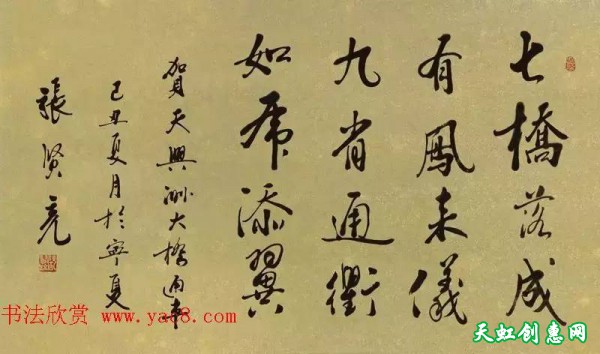 七橋落成
有鳳来儀
九省通衢
如虎添翼
賀天興洲大橋通車
己丑夏月於寧夏
張贤亮
书法欣赏 www.yac8.com
天虹创惠网